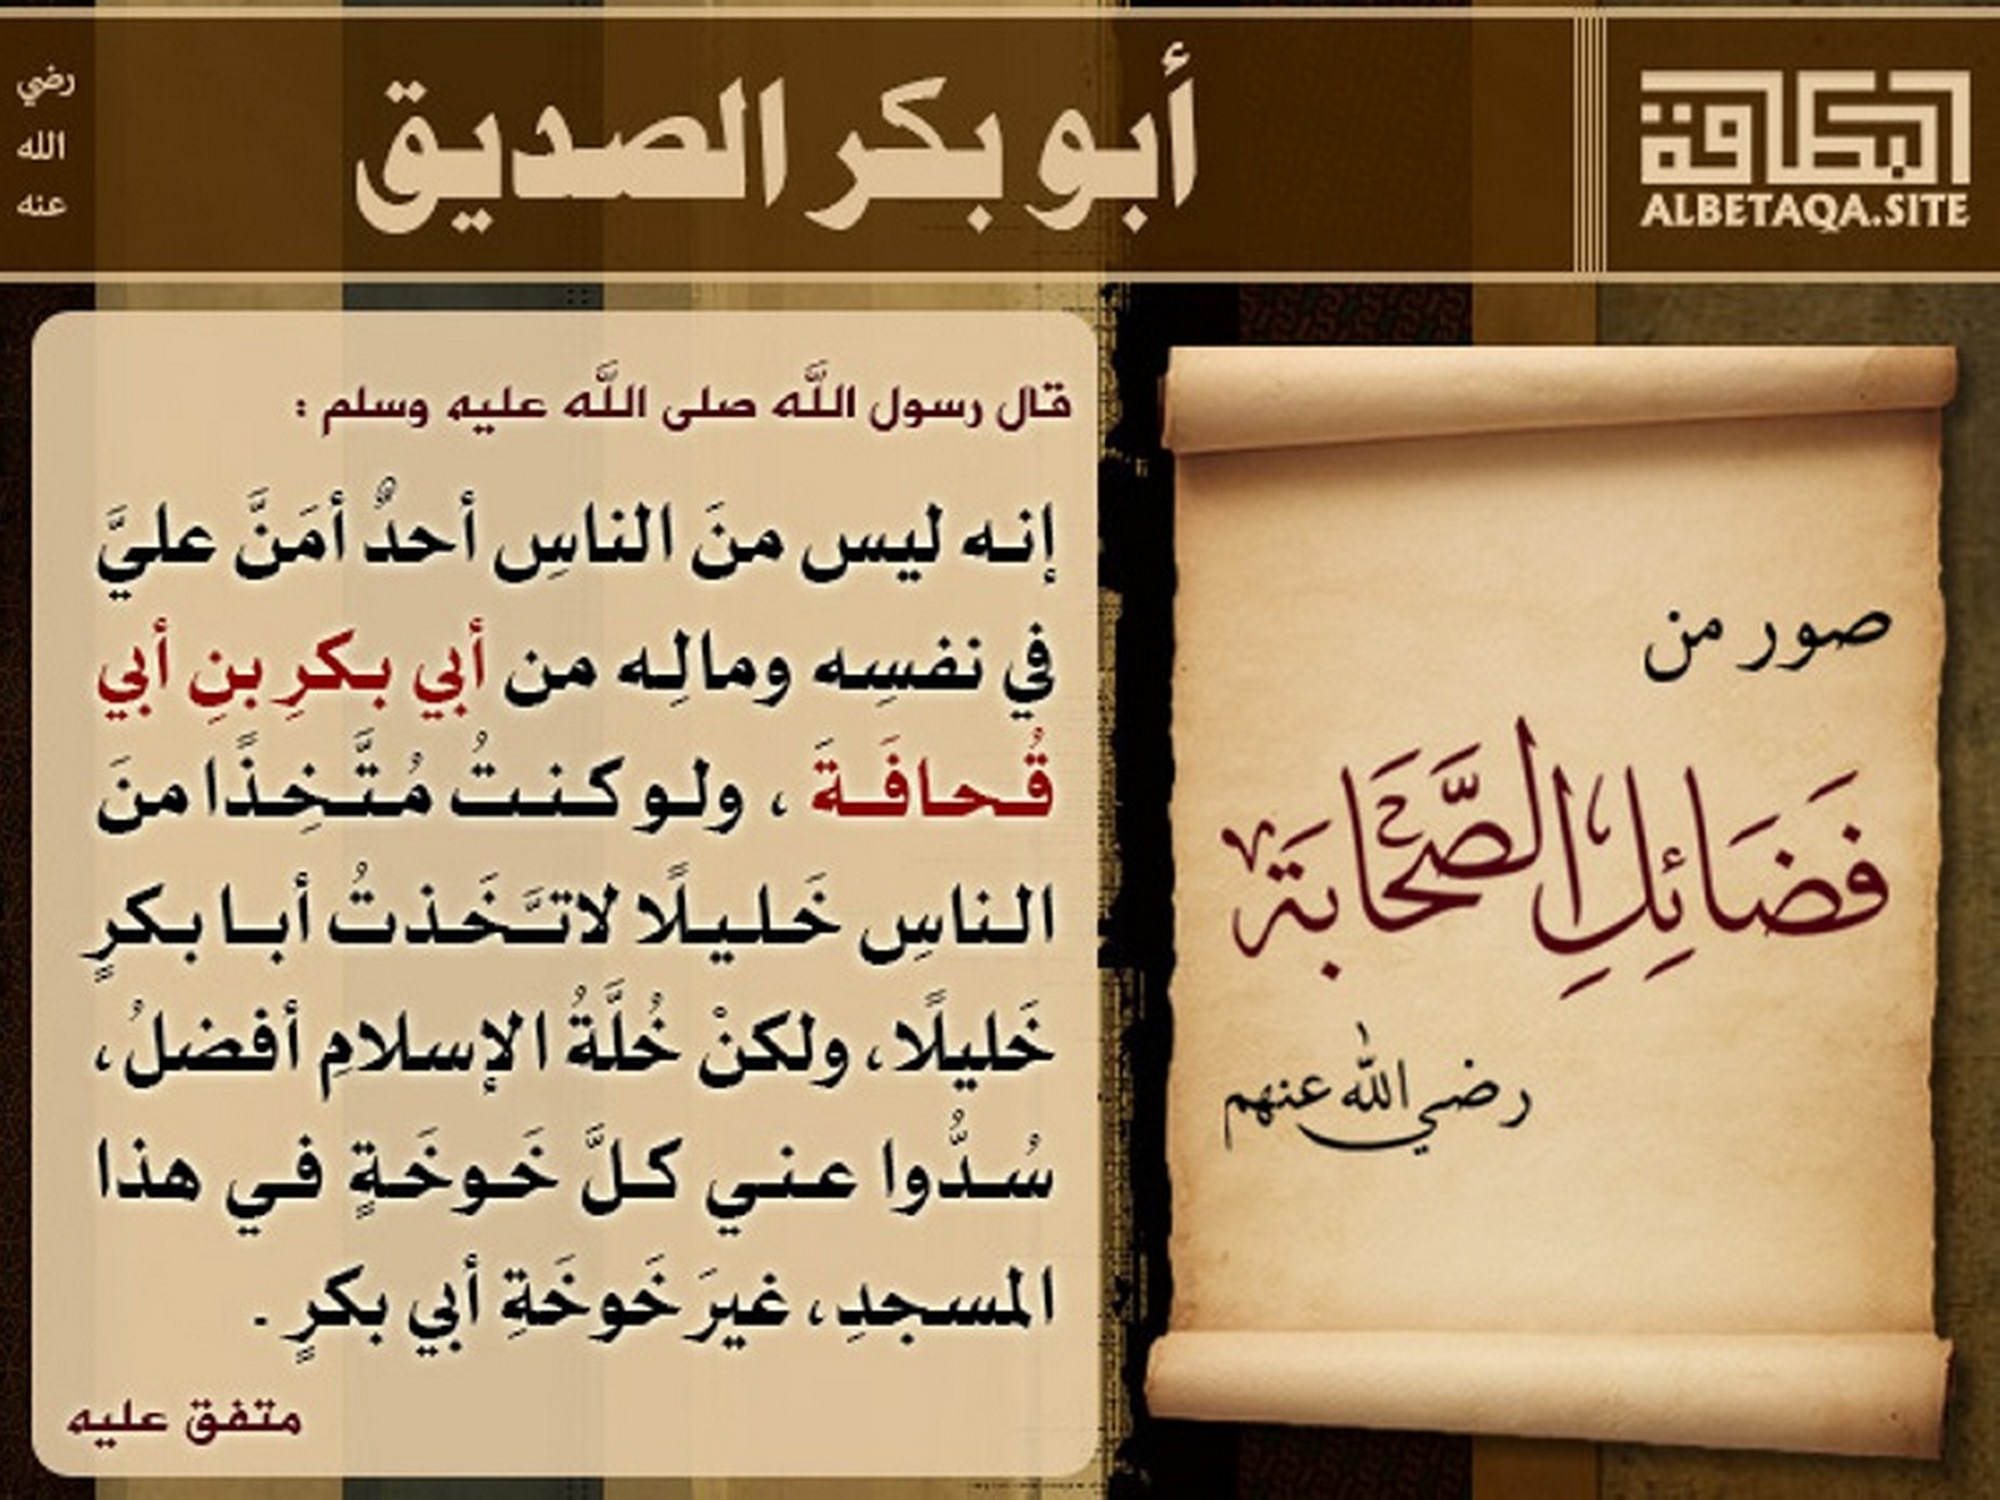 البطاقة
ALBETAQA.SITE
أبو بكر الصديق
رضي
الله
عنه
صور من
فَضَائِلِ الصَّحَابَة
رضي الله عنهم
قال رسول اللَّه صلى اللَّه عليه وسلم :
إنه ليس منَ الناسِ أحدٌ أمَنَّ عليَّ
في نفسِه ومالِه من أبي بكرِ بنِ أبي
قُحافَةَ ، ولو كنتُ مُتَّخِذًا منَ
الناسِ خَليلًا لاتَّخَذتُ أبا بكرٍ
خَليلًا، ولكنْ خُلَّةُ الإسلامِ أفضلُ،
سُدُّوا عني كلَّ خَوخَةٍ في هذا
المسجدِ، غيرَ خَوخَةِ أبي بكرٍ .
متفق عليه